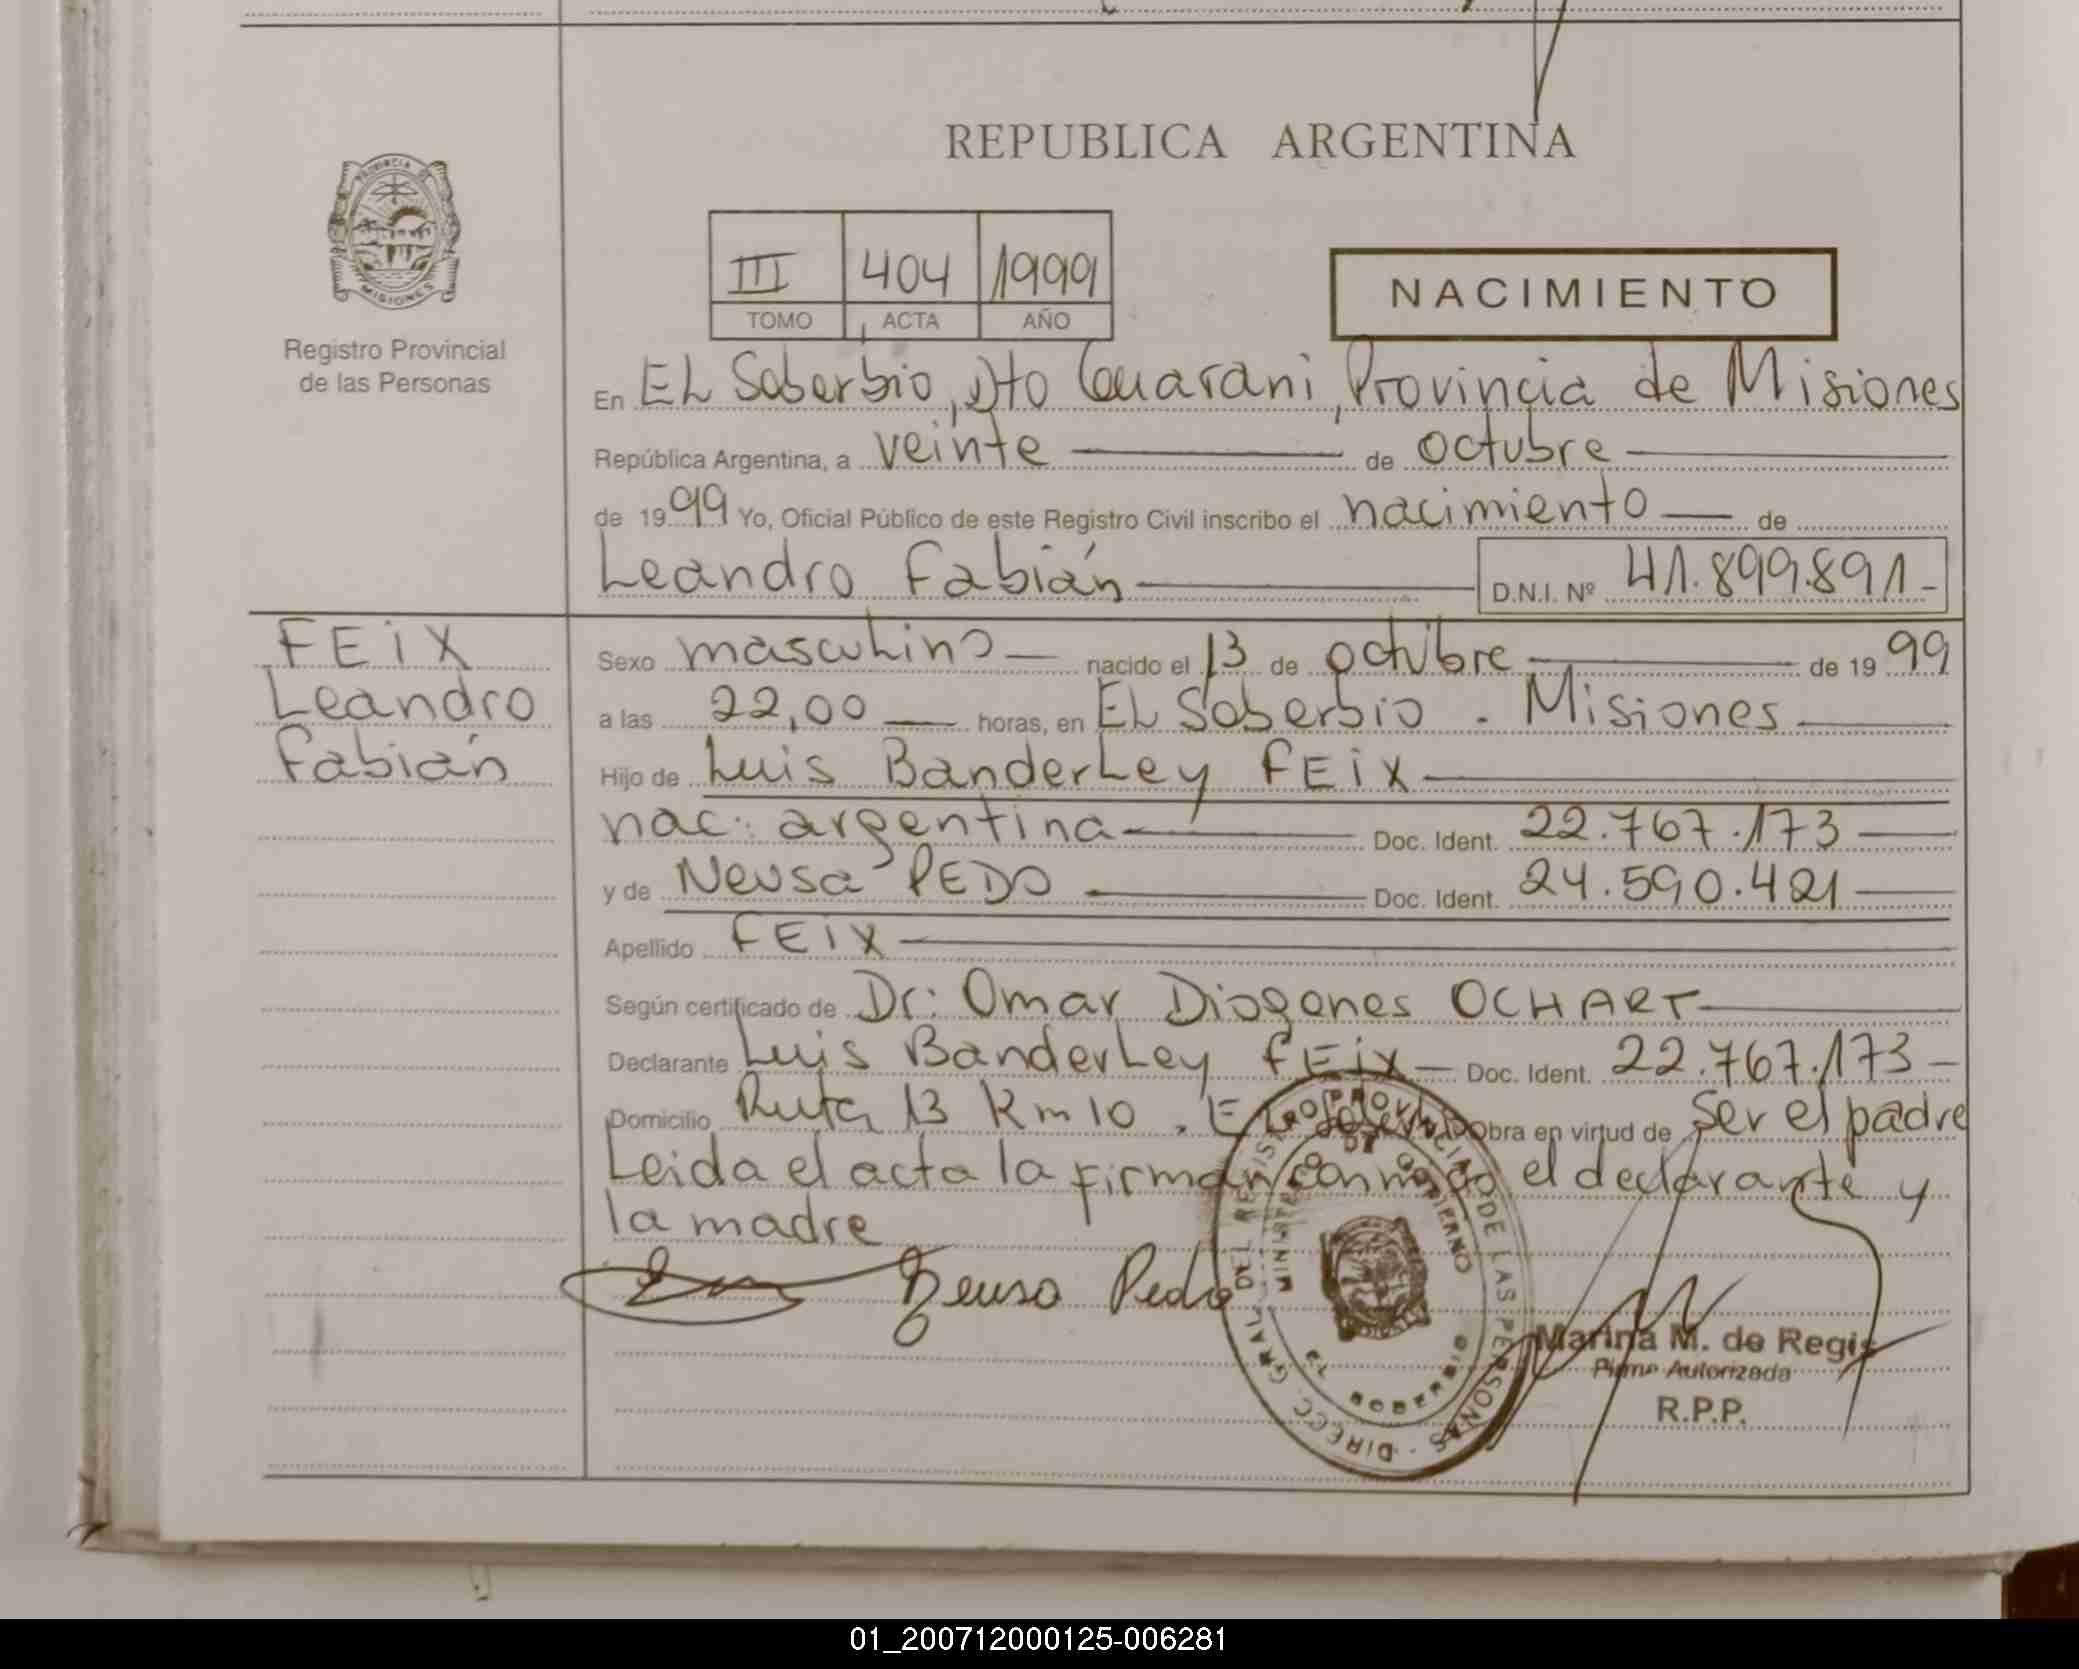 REPUBLICA ARGENTINA
PROVINCIA DE MISIONES
Registro Provincial
de las Personas
III 404 1999
TOMO ACTA AÑO
NACIMIENTO
En EL Soberbio, Dto Guarani, Provincia de Misiones
República Argentina, a veinte de octubre
de 1999 Yo, Oficial Público de este Registro Civil inscribo el nacimiento de
Leandro Fabián D.N.I. Nº 41.899.891-
FEiX
Leandro
Fabián
Sexo masculino nacido el 13 de octubre de 1999
a las 22,00 horas, en EL Soberbio - Misiones
Hijo de Luis BanderLey FEiX
nac: argentina Doc. Ident. 22.767.173
y de Neusa PEDO Doc. Ident. 24.590.421
Apellido FEiX
Según certificado de Dr: Omar Diogenes OCHART
Declarante Luis BanderLey FEiX Doc. Ident. 22.767.173
Domicilio Ruta 13 Km 10. EL Soberbio Obra en virtud de ser el padre
Leida el acta la firman conmigo el declarante y
la madre
Neusa Pedo
DIRECC. GRAL. DEL REGISTRO PROVINCIAL DE LAS PERSONAS
MINISTERIO DE GOBIERNO
EL SOBERBIO
Marina M. de Regis
Firma Autorizada
R.P.P.
01_200712000125-006281